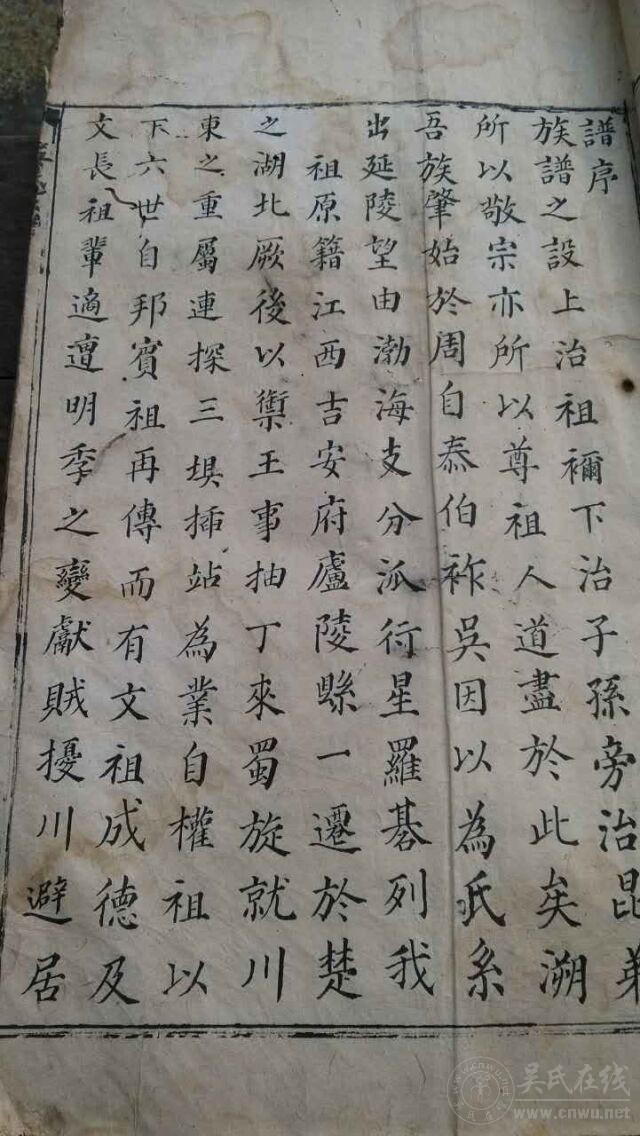 譜序
族譜之設上治祖禰下治子孫旁治昆弟
所以敬宗亦所以尊祖人道盡於此矣溯
吾族肇始於周自泰伯祚吳因以為氏系
出延陵望由渤海支分派衍星羅碁列我
祖原籍江西吉安府廬陵縣一遷於楚
之湖北厥後以禦王事抽丁來蜀旋就川
東之重屬連探三埧插站為業自權祖以
下六世自邦賓祖再傳而有文祖成德及
文長祖輩適遭明季之變獻賊擾川避居
吴氏在线
www.cnwu.net